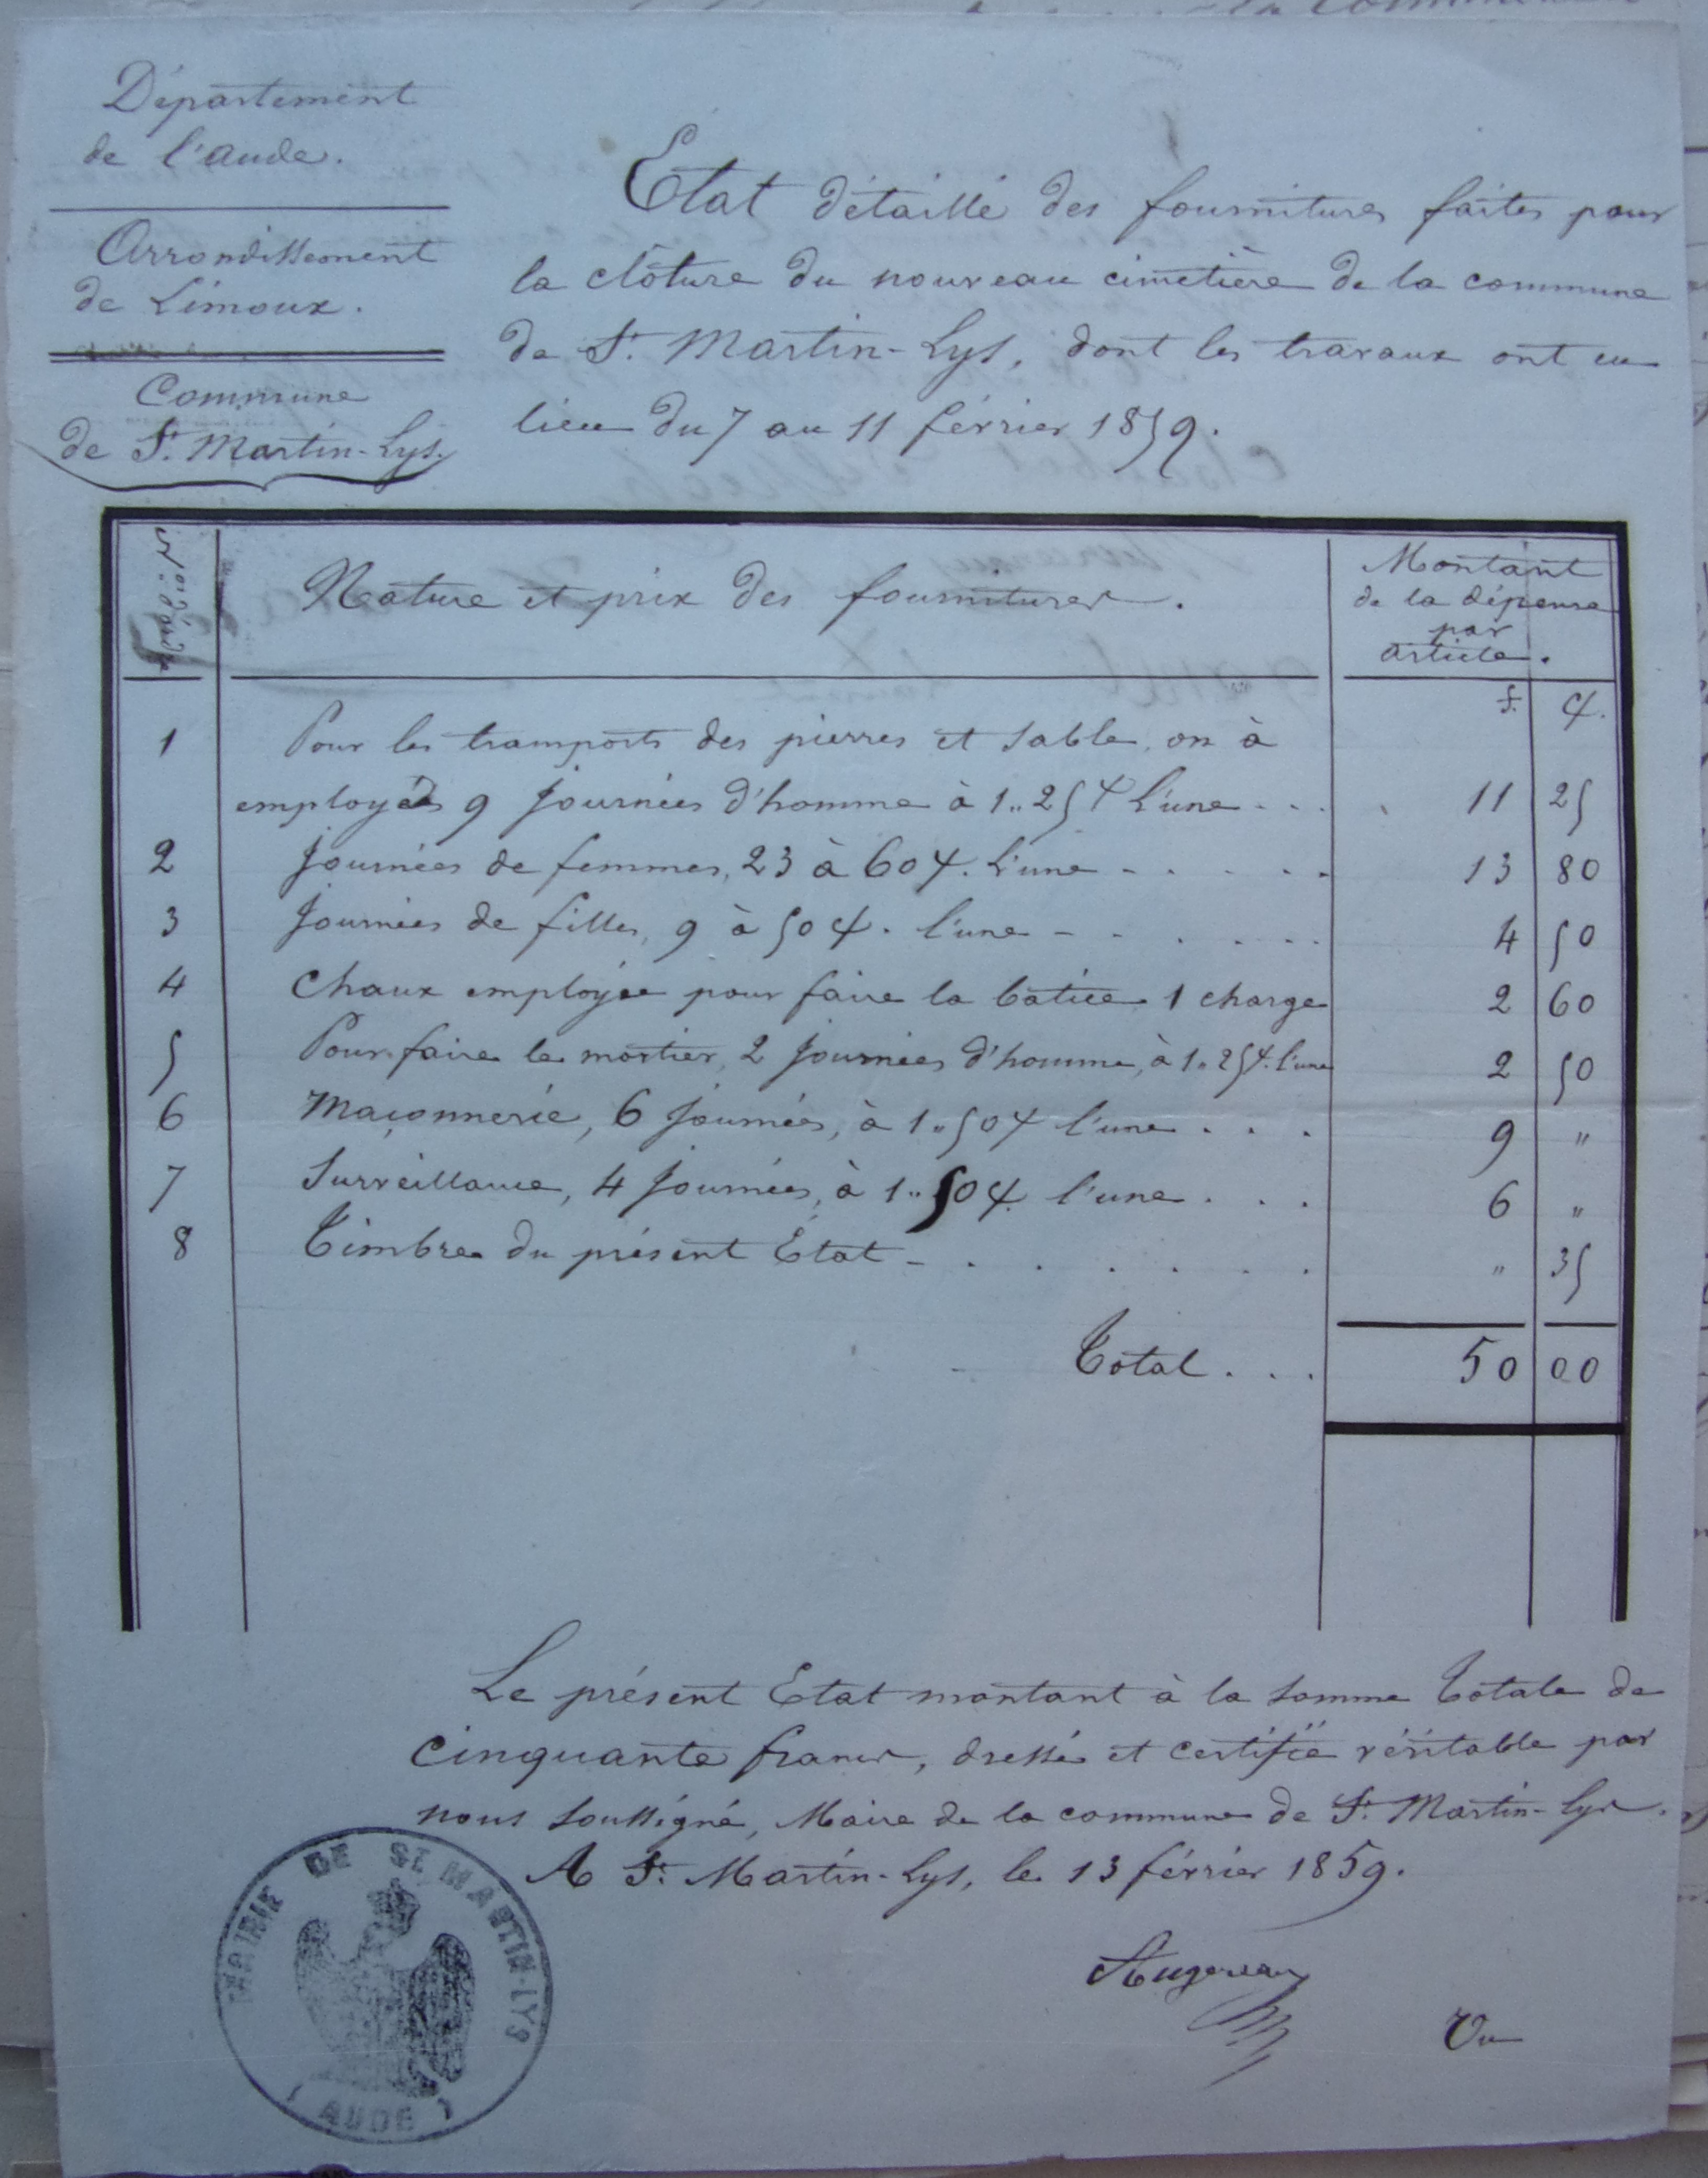 Département
de l'aude.
Arrondissement
de Limoux.
Commune
de St. Martin-Lys.
Etat détaillé des fournitures faites pour
la clôture du nouveau cimetière de la commune
de St. Martin-Lys, dont les travaux ont eu
lieu du 7 au 11 février 1859.
Nos d'ordre
Nature et prix des fournitures.
Montant
de la dépense
par
article.
f. c.
1 Pour les transports des pierres et sable, on à
employés 9 journées d'homme à 1.,25 c l'une . . . 11 25
2 Journées de femmes, 23 à 60 c. l'une - . . . . 13 80
3 Journées de filles, 9 à 50 c. l'une - - . . . . 4 50
4 Chaux employée pour faire la batice 1 charge 2 60
5 Pour faire le mortier, 2 journées d'homme, à 1.,25 c. l'une 2 50
6 Maçonnerie, 6 journées, à 1.,50 c l'une . . . 9 "
7 Surveillance, 4 journées, à 1.,50 c. l'une . . . 6 "
8 Timbre du présent Etat - . . . . . . " 35
Total . . . 50 00
Le présent Etat montant à la somme totale de
cinquante francs, dressé et certifié véritable par
nous soussigné, Maire de la commune de St. Martin-Lys.
A St. Martin-Lys, le 13 février 1859.
Augereau
Vu
MAIRIE DE ST MARTIN-LYS
(AUDE)